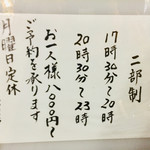 二部制
17時30分〜20時
20時30分〜23時
お一人様八〇〇〇円〜
ご予約を承ります
月曜日定休